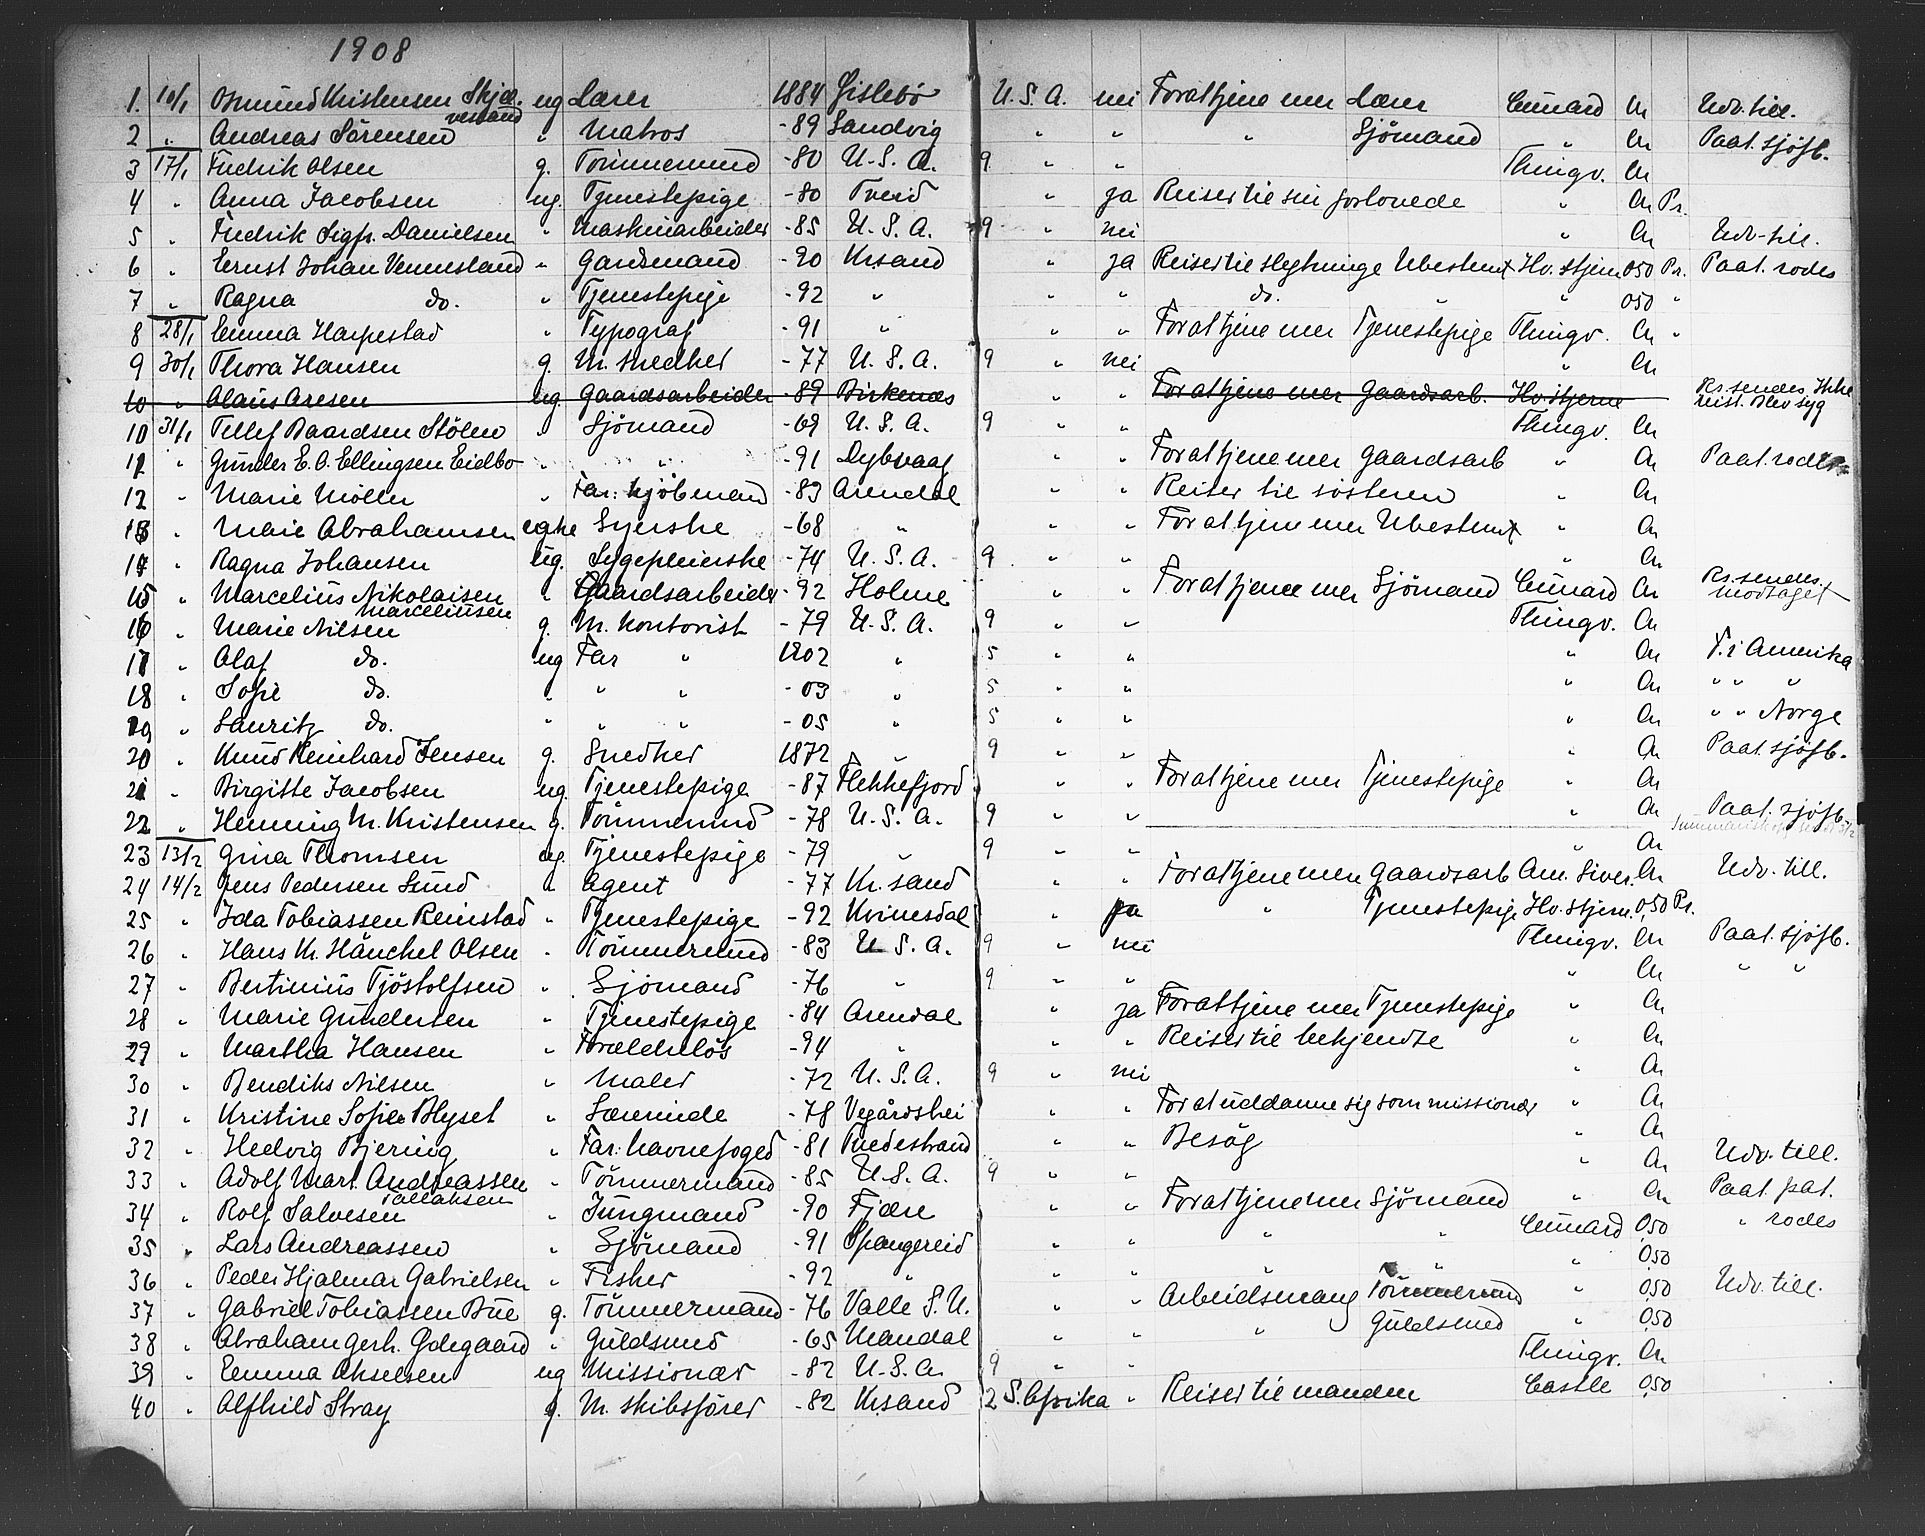 1908
1. 10/1 Osmund Kristensen Skjævesland ug Lærer 1884 Gislebö U. S. A. nei For at tjene mer Lærer Cunard An Udv. till.
2 " Andreas Sörensen " Matros -89 Sandvig " " " Sjömand " An Paat. sjöfb.
3 17/1 Fredrik Olsen g. Tömmermand -80 U. S. A. 9 " " Thingv. An
4 " Anna Jacobsen ug. Tjenestepige -80 Tveid " ja Reiser til sin forlovede " An Pr.
5 " Fredrik Sigfr. Danielsen " Maskinarbeider -85 U. S. A. 9 " nei " An Udv. till.
6 " Ernst Johan Vennesland " Gardsmand -90 Krsand " ja Reiser til slegtninge Ubestemt Hv. stjern 050 Pr. Paat. rodes
7 " Ragna do. " Tjenestepige -92 " " " do. " " 050 "
8 28/1 Emma Harpestad " Typograf -91 " " " For at tjene mer Tjenestepige Thingv. An "
9 30/1 Thora Hansen g. M. snedker -77 U. S. A. 9 " nei " An
10 " Olaus Aresen ug. Gaardsarbeider -89 Birkenes " " For at tjene mer Gaardsarb. Hv. stjerne Rs. sendes Ikke reist. Blev syg
10 31/1 Tellef Baardsen Stölen " Sjömand -69 U. S. A. 9 " " Thingv. An
11 " Gunder E. O. Ellingsen Eidbo " " -91 Dybvaag " " For at tjene mer Gaardsarb " An Paat. rodes
12 " Marie Möller " Far: kjöbmand -83 Arendal " " Reiser til sösteren " An
13 " Marie Abrahamsen egke Syerske -68 " " " For at tjene mer Ubestemt " An
14 " Ragna Johansen ug. Sygepleierske -74 U. S. A. 9 " " " An
15 " Marcelius Nikolaisen Marceliussen " Gaardsarbeider -92 Holme " " For at tjene mer Sjömand Cunard An Rs. sendes. Modtaget
16 " Marie Nilsen g. M. kontorist -79 U. S. A. 9 " " Thingv. An
17 " Olaf do. ug Far " 1902 " 5 " " " An F. i Amerika
18 " Sofie do. " " " -03 " 5 " " " An " " "
19 " Lauritz do. " " " -05 " 5 " " " An " " Norge
20 " Knud Reinhard Jensen g. Snedker 1872 " 9 " " " An Paat. sjöfb.
21 " Birgitte Jacobsen ug. Tjenestepige -87 Flekkefjord " " For at tjene mer Tjenestepige " An
22 " Henning M. Kristensen g. Tömmermd -78 U. S. A. 9 " " " An Paat. sjöfb.
23 13/2 Gina Thomsen ug. Tjenestepige -79 " 9 " " " An
24 14/2 Jens Pedersen Lund " Agent -77 Kr.sand " " For at tjene mer Gaardsarb Am. Liver. An Udv. till.
25 " Ida Tobiassen Reinstad " Tjenestepige -92 Kvinesdal " ja " Tjenestepige Hv. stjern. 0,50 Pr.
26 " Hans M. Hänchel Olsen " Tömmermd -83 U. S. A. 9 " nei Thingv. An Paat. sjöfb.
27 " Bertinius Tjöstolfsen " Sjömand -76 " 9 " " " An " "
28 " Marie Gundersen " Tjenestepige -84 Arendal " ja For at tjene mer Tjenestepige " An
29 " Martha Hansen " Foreldrelös -94 " " " Reiser til bekjendte " An
30 " Bendiks Nilsen " Maler -72 U. S. A. 9 " nei " An
31 " Kristine Sofie Blyset " Lærerinde -78 Vegårdshei " " For at uddanne sig som missionær " An
32 " Hedvig Bjering " Far: havnefoged -81 Tvedestrand " " Besög " An
33 " Adolf Mart. Andreassen " Tömmermand -85 U. S. A. 9 " " " An Udv. till.
34 " Rolf Salvesen Tallaksen " Jungmand -90 Fjære " " For at tjene mer Sjömand " An Paat. pat.
35 " Lars Andreassen " Sjömand -91 Spangereid " " " " Cunard 0,50 " rodes
36 " Peder Hjalmar Gabrielsen " Fisker -92 " " " " " " 0,50
37 " Gabriel Tobiassen Bue g. Tömmermand -76 Valle S. U. " " Arbeidsmang Tömmermd " 0,50 Udv. till.
38 " Abraham Gerh. Ödegaard " Guldsmed -65 Mandal " " " Guldsmed " 0,50
39 " Emma Akselsen ug Missionær -82 U. S. A. 9 " " Thingv. An
40 " Alfhild Stray g. M. skibsförer -82 Krsand 2 S. Afrika " Reiser til manden Castle 0,50